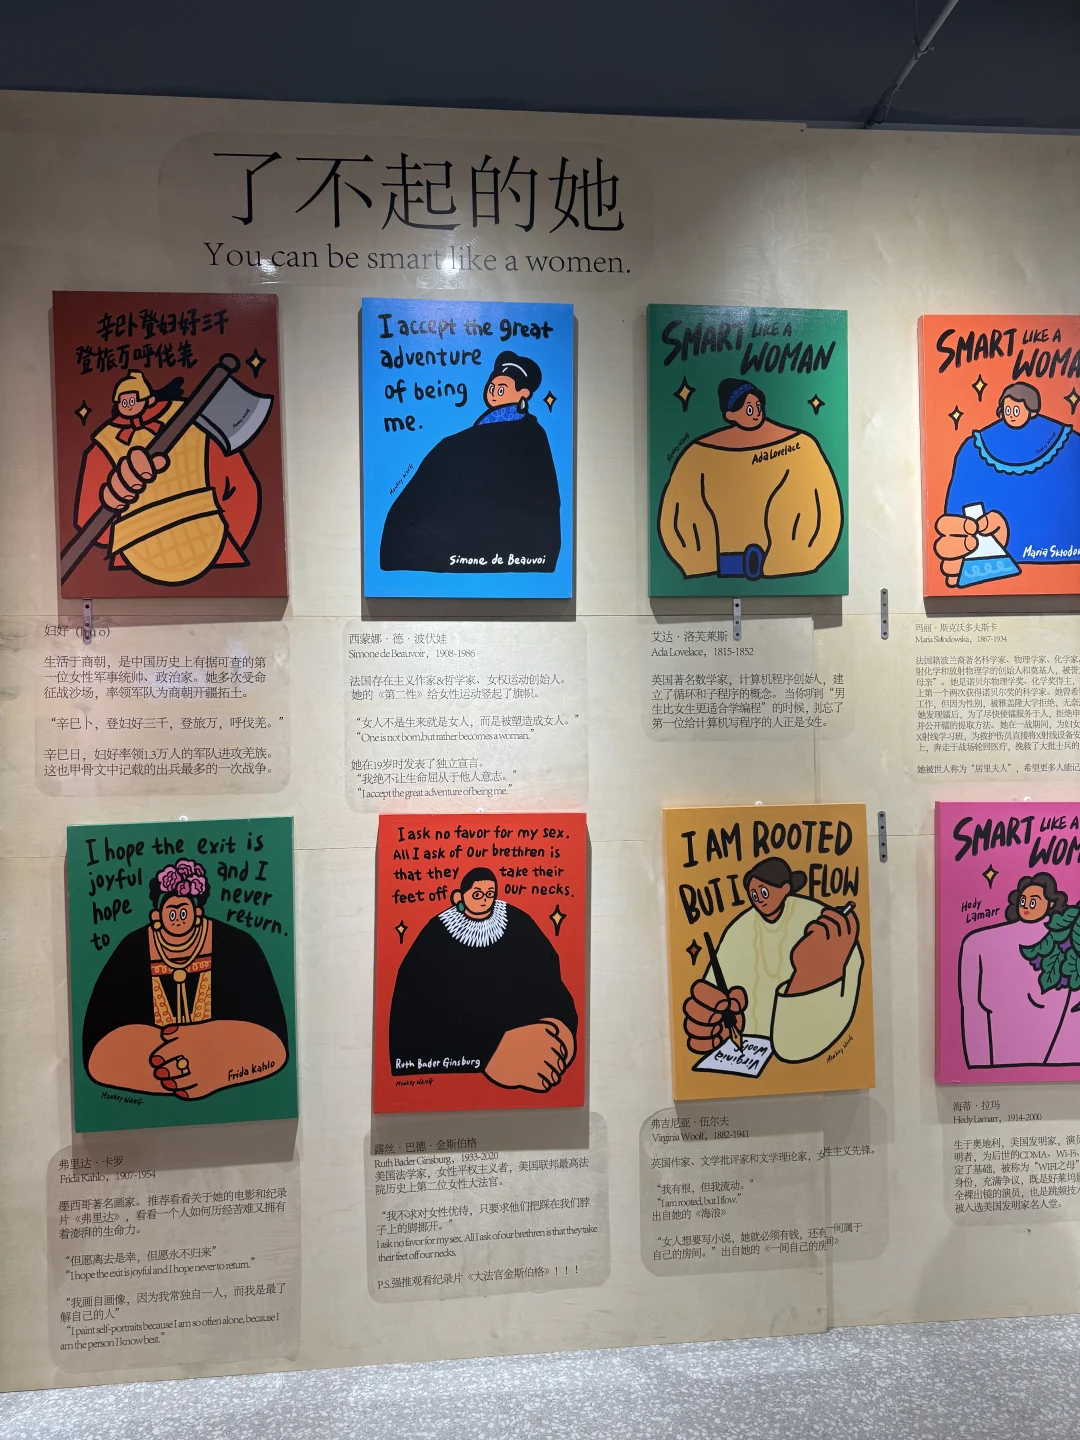 了不起的她
You can be smart like a women.
辛巳卜登妇好三千
登旅万呼伐羌
Monkey Wang
I accept the great
adventure
of being
me.
Monkey Wang
Simone de Beauvoi
SMART LIKE A
WOMAN
Monkey Wang
Ada Lovelace
SMART LIKE A
WOMA
Maria Skłodow
妇好（hǔ o）
生活于商朝，是中国历史上有据可查的第
一位女性军事统帅、政治家。她多次受命
征战沙场，率领军队为商朝开疆拓土。
“辛巳卜，登妇好三千，登旅万，呼伐羌。”
辛巳日，妇好率领1.3万人的军队进攻羌族。
这也甲骨文中记载的出兵最多的一次战争。
西蒙娜 · 德 · 波伏娃
Simone de Beauvoir，1908-1986
法国存在主义作家&哲学家、女权运动创始人。
她的 《第二性》 给女性运动竖起了旗帜。
“女人不是生来就是女人，而是被塑造成女人。”
“One is not born,but rather becomes a woman.”
她在19岁时发表了独立宣言。
“我绝不让生命屈从于他人意志。”
“I accept the great adventure of being me.”
艾达 · 洛芙莱斯
Ada Lovelace，1815-1852
英国著名数学家，计算机程序创始人，建
立了循环和子程序的概念。当你听到“男
生比女生更适合学编程”的时候，别忘了
第一位给计算机写程序的人正是女性。
玛丽 · 斯克沃多夫斯卡
Maria Skłodowska，1867-1934
法国籍波兰裔著名科学家、物理学家、化学家，
射化学和放射物理学的创始人和奠基人，被誉
母亲”。她是诺贝尔物理学奖、化学奖得主，
上第一个两次获得诺贝尔奖的科学家。她曾希
工作，但因为性别，被雅盖隆大学拒绝，无奈
她发现镭后，为了尽快使镭服务于人，拒绝申
并公开镭的提取方法。她在一战期间，为妇女
X射线学习班，为救护伤员直接将X射线设备安
上，奔走于战场轮回医疗，挽救了大批士兵的
她被世人称为“居里夫人”，希望更多人能记
I hope the exit is
joyful and I
hope never
to return.
Frida Kahlo
Monkey WANG.
I ask no favor for my sex.
All I ask of our brethren is
that they take their
feet off our necks.
Ruth Bader Ginsburg
Monkey WANG
I AM ROOTED
BUT I FLOW
Virginia
Woolf
Monkey Wang
SMART LIKE A
WOM
Hedy
Lamarr
弗里达 · 卡罗
Frida Kahlo，1907-1954
墨西哥著名画家。推荐看看关于她的电影和纪录
片《弗里达》，看看一个人如何历经苦难又拥有
着澎湃的生命力。
“但愿离去是幸，但愿永不归来”
“I hope the exit is joyful and I hope never to return.”
“我画自画像，因为我常独自一人，而我是最了
解自己的人”
“I paint self-portraits because I am so often alone, because I
am the person I know best.”
露丝 · 巴德 · 金斯伯格
Ruth Bader Ginsburg，1933-2020
美国法学家，女性平权主义者，美国联邦最高法
院历史上第二位女性大法官。
“我不求对女性优待，只要求他们把踩在我们脖
子上的脚挪开。”
I ask no favor for my sex. All I ask of our brethren is that they take
their feet off our necks.
P.S.强推观看纪录片《大法官金斯伯格》！！！
弗吉尼亚 · 伍尔夫
Virginia Woolf，1882-1941
英国作家、文学批评家和文学理论家，女性主义先锋。
“我有根，但我流动。”
“I am rooted, but I flow.”
出自她的《海浪》
“女人想要写小说，她就必须有钱，还有一间属于
自己的房间。”出自她的《一间自己的房间》
海蒂 · 拉玛
Hedy Lamarr，1914-2000
生于奥地利，美国发明家，演员
明者，为后世的CDMA、Wi-Fi、
定了基础，被称为“WIFI之母”
身份，充满争议，既是好莱坞
全裸出镜的演员，也是跳频技术
被入选美国发明家名人堂。